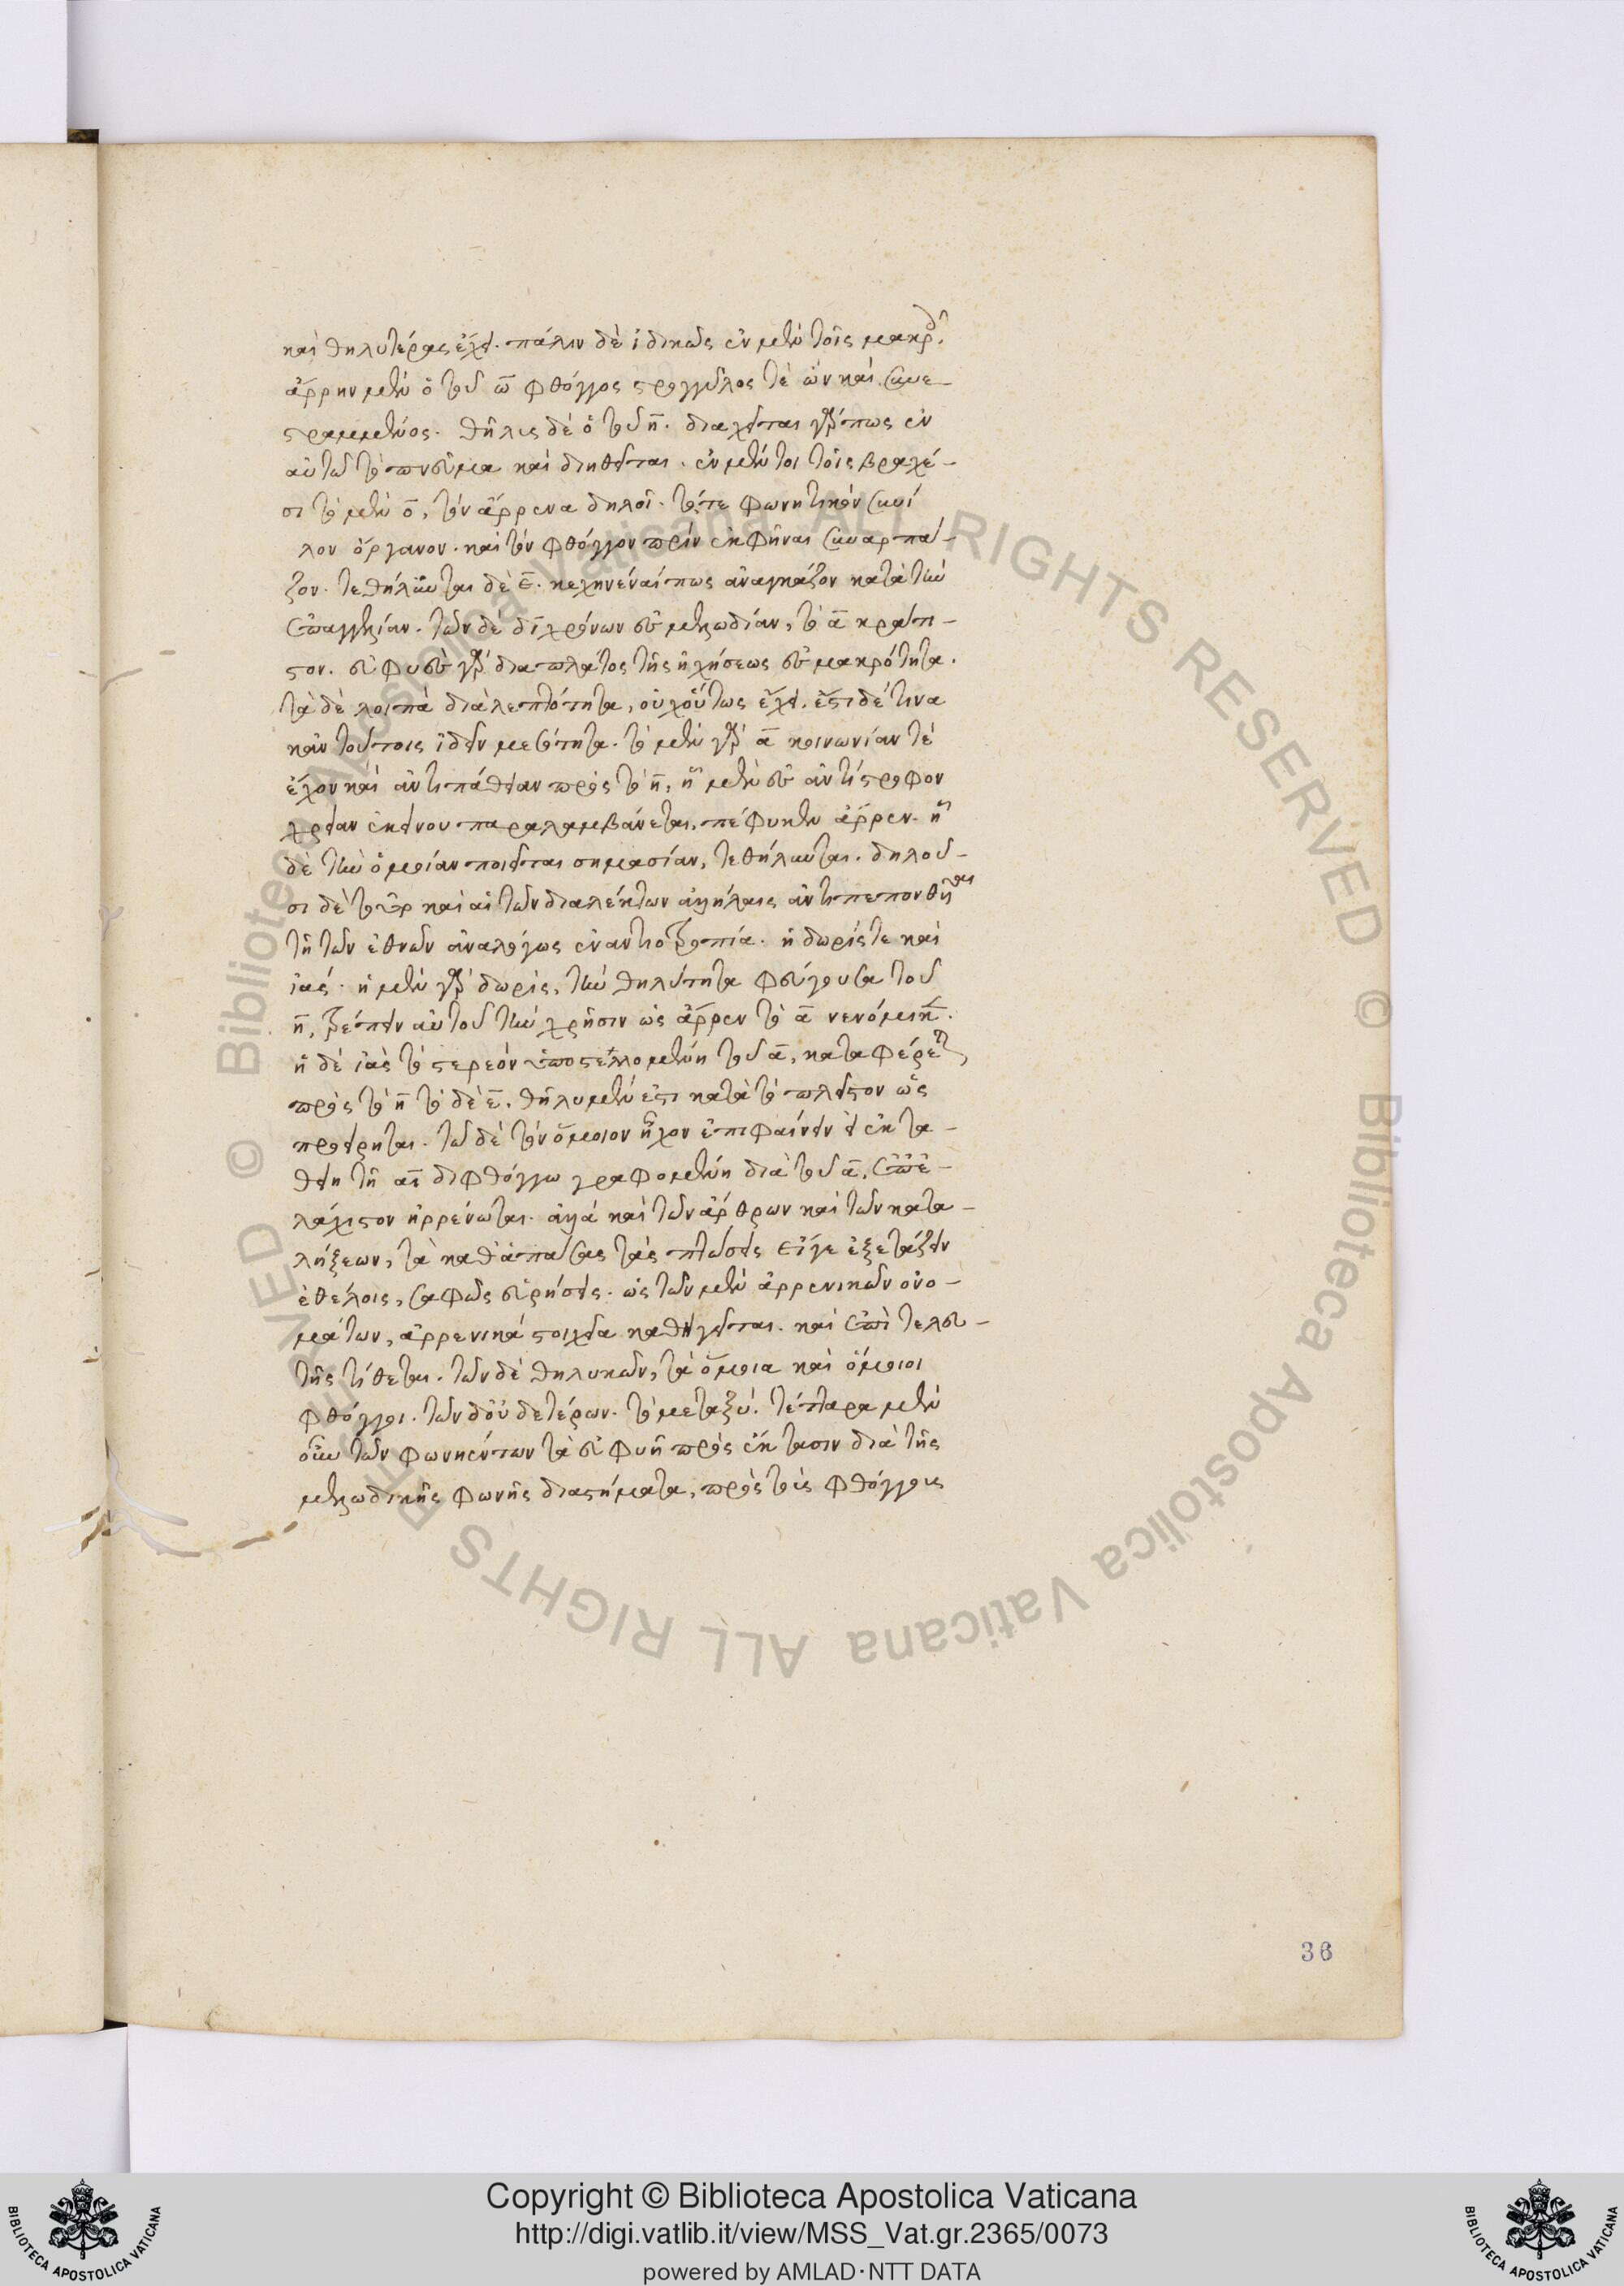 καὶ θηλυτέρας ἔχει. πάλιν δὲ ἰδικῶς ἐν μὲν τοῖς μακροῖς
ἄρρην μὲν ὁ τοῦ ω̅ φθόγγος στρογγύλος τὲ ὢν καὶ συνε-
στραμμένος. θῆλυς δὲ ὁ τοῦ η̅. διαχεῖται γάρ πως ἐν
αὐτῶ τὸ πνεῦμα καὶ διηθεῖται. ἐν μέντοι τοῖς βραχέ-
σι τὸ μὲν ο̅, τὸν ἄρρενα δηλοῖ. τό τε φωνητικὸν συνί
λον ὄργανον. καὶ τὸν φθόγγον πρὶν ἐκφῆναι συναρπά-
ζον. τεθήλυνται δὲ ε̅. κεχηνέναί πως ἀναγκάζον κατὰ τὴν
ἐπαγγελίαν. τῶν δὲ διχρόνων εὖ μελωδίαν, τὸ α̅ κράτι-
στον. εὐφυὲς γὰρ δια πλάτος τῆς ἠχήσεως εὖ μακρότητα.
τὰ δὲ λοιπὰ διὰ λεπτότητα, οὐχ οὕτως ἔχει. ἔστι δέ τινα
κἀν τούτοις ἰδεῖν μεσότητα. τὸ μὲν γὰρ α̅ κοινωνίαν τὲ
ἔχον καὶ ἀντιπάθειαν πρὸς τὸ η̅, ἧ μὲν εὖ ἀντίστροφον
χρείαν ἐκείνου παραλαμβάνεται, πέφυκεν ἄρρεν. ἧ
δὲ τὴν ὁμοίαν ποιεῖται σημασίαν, τεθήλυνται. δηλοῦ-
σι δὲ τοῦτο καὶ αἱ τῶν διαλέκτων ἀλλήλαις ἀντιπεπονθῆναι
τῆ τῶν ἐθνῶν ἀναλόγως ἐναντιοτροπία. ἡ δωρίς τε καὶ
ἰάς. ἡ μὲν γὰρ δωρὶς, τὴν θηλύτητα φεύγουσα τοῦ
η̅, τρέπειν αὐτοῦ τὴν χρῆσιν ὡς ἄρρεν τὸ α̅ νενόμικε.
ἡ δὲ ἰὰς τὸ στερεὸν ὑποστελλομένη τοῦ α̅, καταφέρεται
πρὸς τὸ η̅ τὸ δὲ ε̅. θῆλυ μέν ἐστι κατὰ τὸ πλεῖστον ὡς
προείρηται. τῶ δὲ τὸν ὅμοιον ἦχον ἐπιφαίνειν εἰ ἐκτα-
θείη τῆ αι̅ διφθόγγω γραφομένη διὰ τοῦ α̅, ἐπ' ἐ-
λάχιστον ἠρρένωται. ἀλλὰ καὶ τῶν ἄρθρων καὶ τῶν κατα-
λήξεων, τὰ καθ' ἁπάσας τὰς πτώσεις εἴγε ἐξετάζειν
ἐθέλοις, σαφῶς εὑρήσεις. ὡς τῶν μὲν ἀρρενικῶν ὀνο-
μάτων, ἀρρενικὰ στοιχεῖα καθηγεῖται. καὶ ἐπὶ τελευ-
τῆς τίθεται. τῶν δὲ θηλυκῶν, τὰ ὅμοια καὶ ὅμοιοι
φθόγγοι. τῶν δ' οὐδετέρων. τὸ μεταξύ. τέτταρα μὲν
οὖν τῶν φωνηέντων τὰ εὐφυῆ πρὸς ἔκτασιν διὰ τῆς
μελωδικῆς φωνῆς διαστήματα, πρὸς τοῖς φθόγγοις
36
Copyright © Biblioteca Apostolica Vaticana
http://digi.vatlib.it/view/MSS_Vat.gr.2365/0073
powered by AMLAD·NTT DATA
BIBLIOTECA APOSTOLICA VATICANA
BIBLIOTECA APOSTOLICA VATICANA
© Biblioteca Apostolica Vaticana ALL RIGHTS RESERVED
© Biblioteca Apostolica Vaticana ALL RIGHTS RESERVED